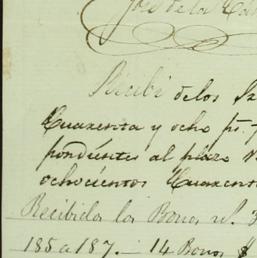 José de la
Recibí de los
Cuarenta y ocho ps.
pondientes al plazo
ochocientos Cuarenta
Recibidos los Bonos nl. 3
185 a 187. — 14 Bonos $